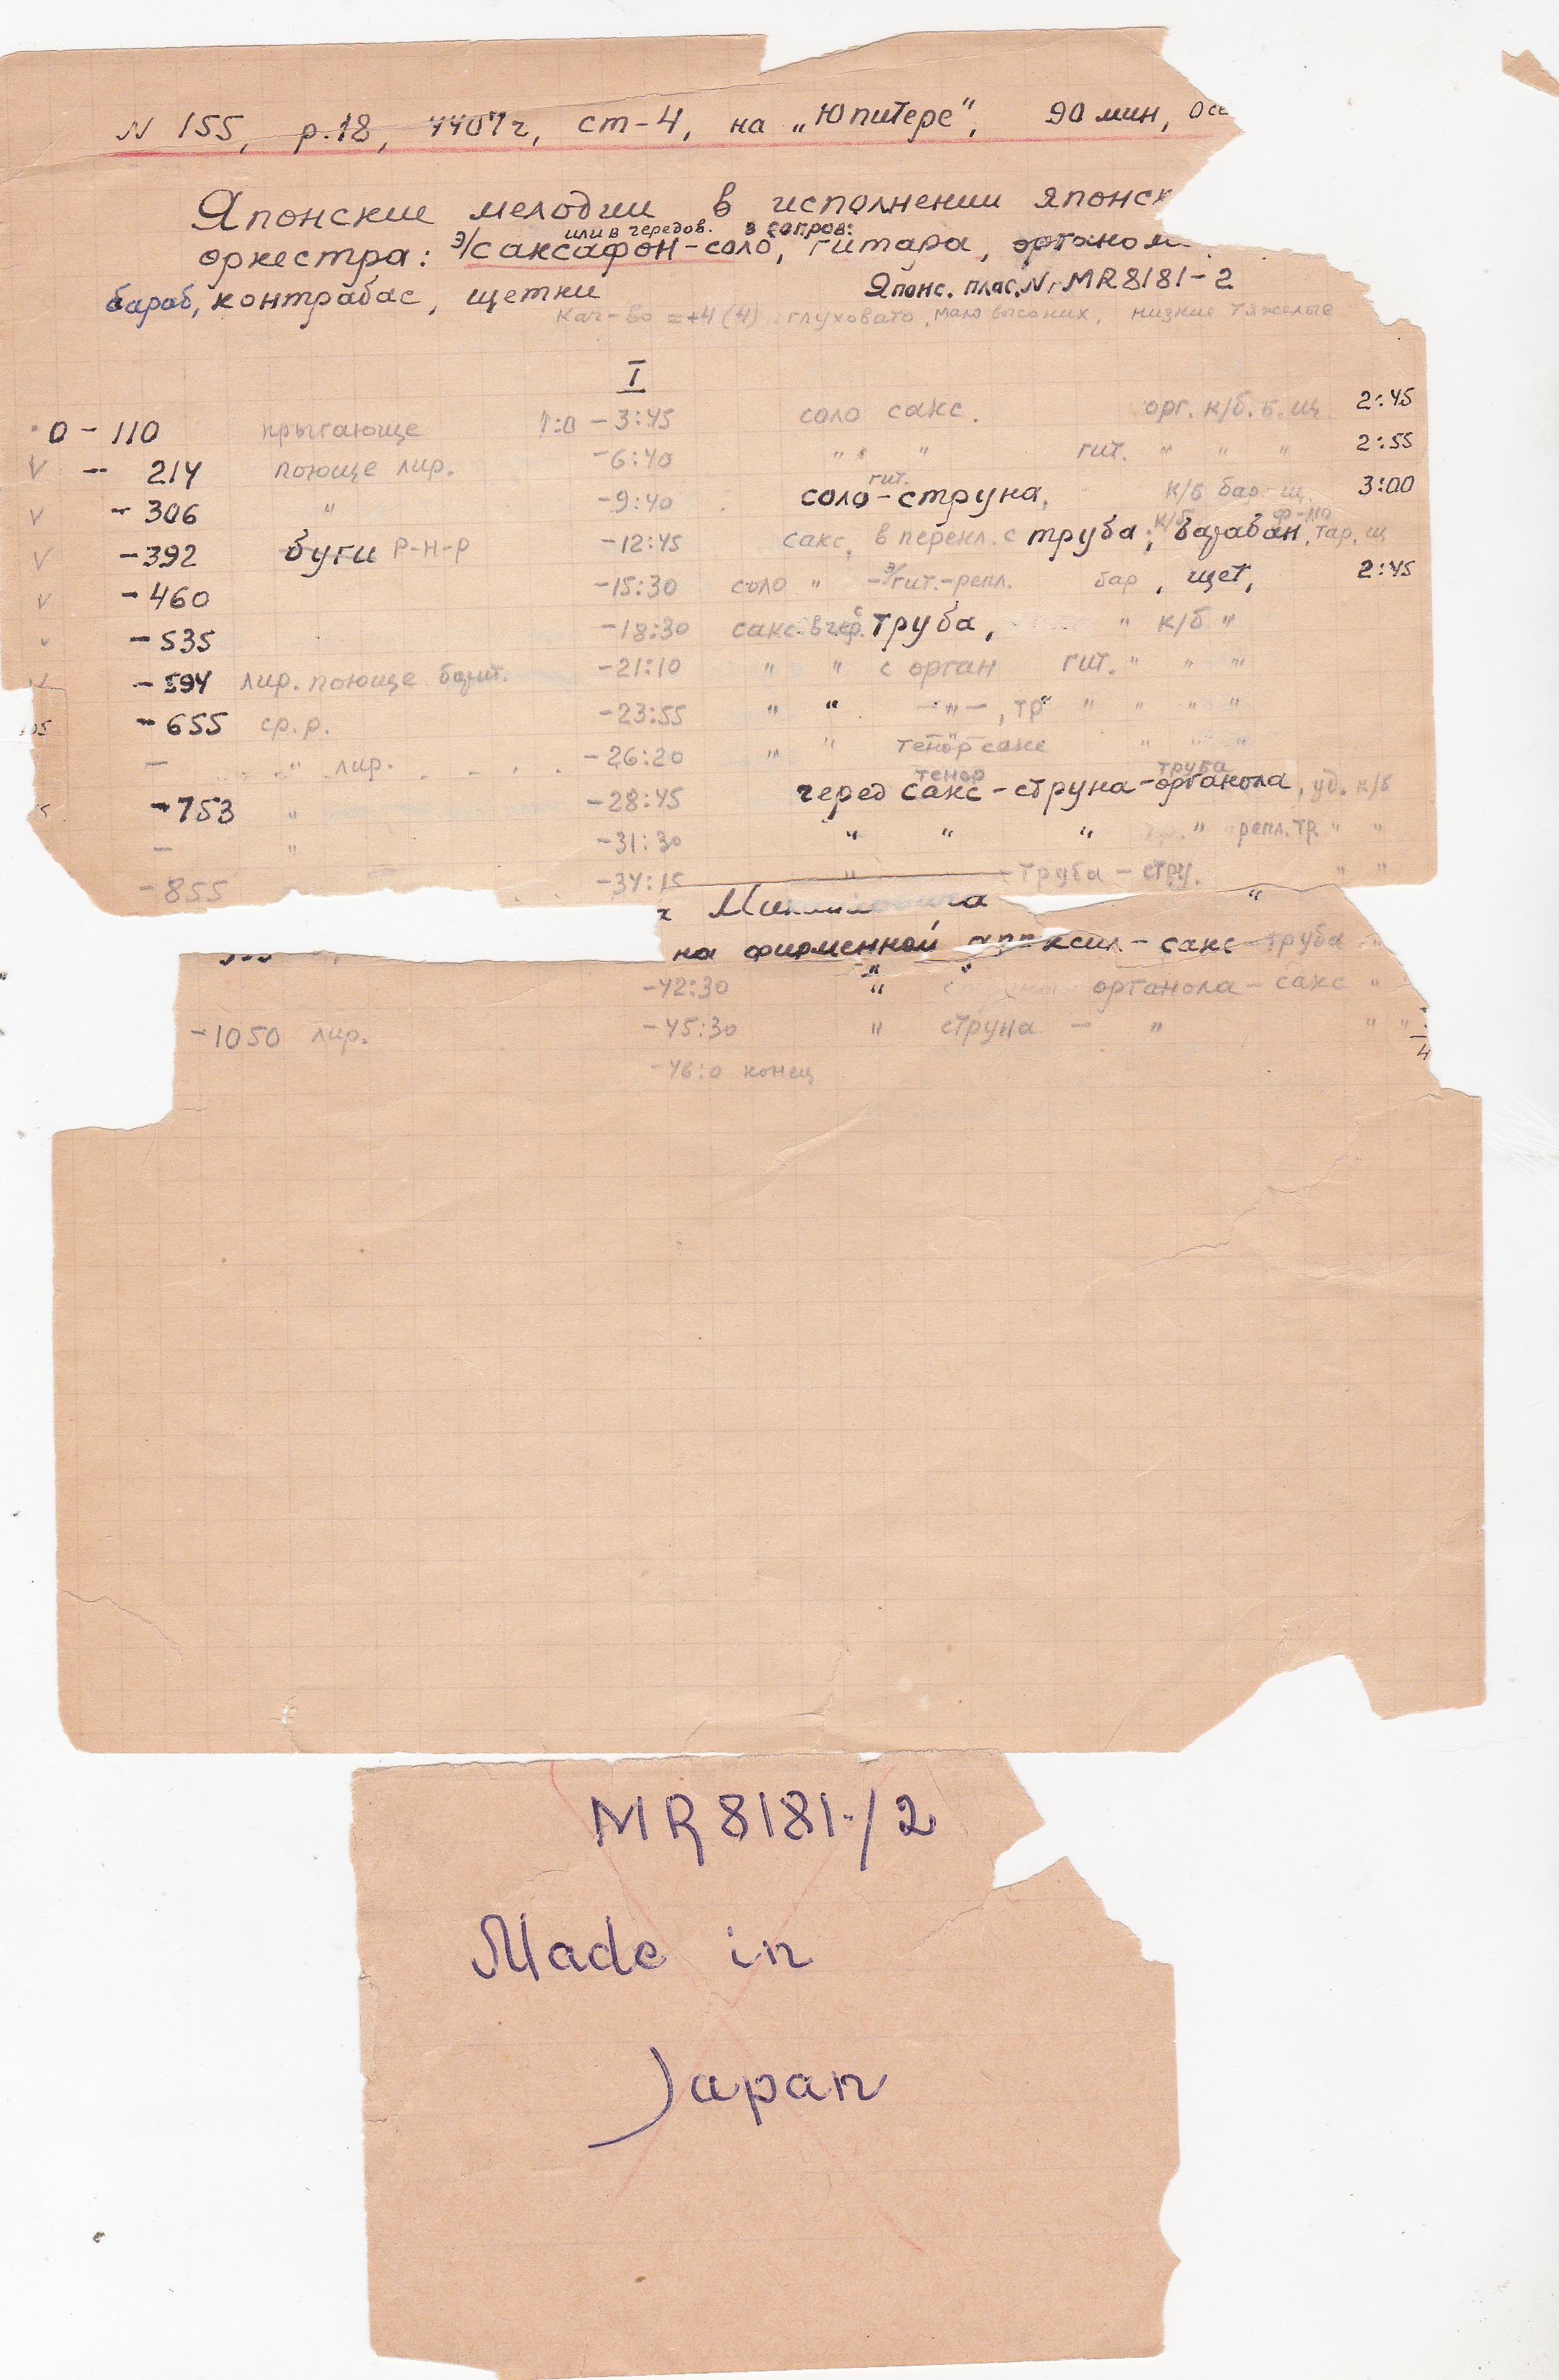 N 155, р.18, 4407ч, ст-4, на „Юпитере“, 90 мин,
Японские мелодии в исполнении японск
или в чередов. в сопров:
оркестра: э/саксафон-соло, гитара,
бараб, контрабас, щетки Японс. плас. N MR8181-2
кач-во = +4 (4) глуховато, мало высоких, низкие тяжелые
I
0 - 110 прыгающе 1:0 - 3:45 соло сакс. орг. к/б. б. щ. 2:45
V - 214 поюще лир. -6:40 " " " гит. " " " 2:55
гит.
V - 306 " -9:40 соло-струна, к/б бар. щ. 3:00
к/б ф-но
V -392 буги Р-Н-Р -12:45 сакс, в перекл. с труба, барабан, тар, щ
V -460 -15:30 соло " -э/гит.-репл. бар, щет, 2:45
V -535 -18:30 сакс. в чер. с труба, " к/б "
-594 лир. поюще -21:10 " " с орган гит. " " "
-655 ср. р. -23:55 " " -"-, тр " " " "
- " лир. -26:20 " " тенор сакс " " "
тенор труба
-753 " -28:45 черед сакс-струна-органола, уд. к/б
- " -31:30 " " " " репл. тр. " "
-855 -34:15 " -труба-стру. " "
"
на фирменной - сакс-труба "
-42:30 " органола-сакс "
-1050 лир. -45:30 " струна - " " "
4
-46:0 конец
MR8181-/2
Made in
Japan